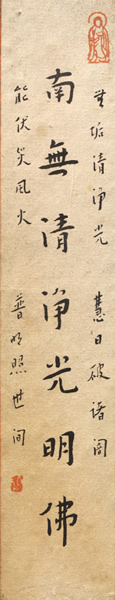 無垢清淨光 慧日破諸闇
南無清淨光明佛
能伏災風火 普明照世間